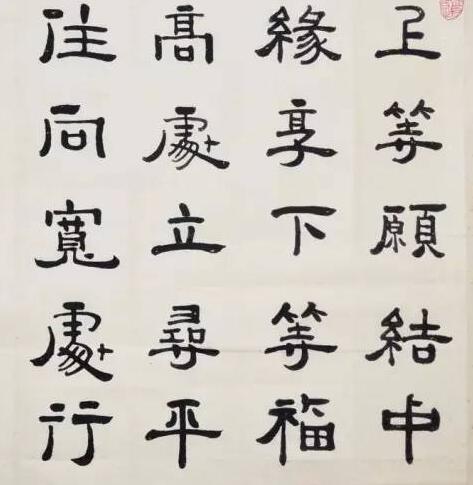 上等願結中
緣享下等福
高處立尋平
住向寬處行